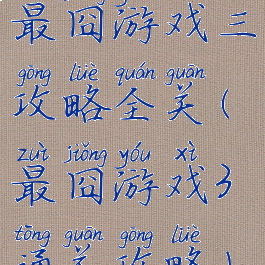 最囧游戏三
gōng lüè quán guān
攻略全关(
zuì jiǒng yóu xì
最囧游戏3
tōng guān gōng lüè
通关攻略)